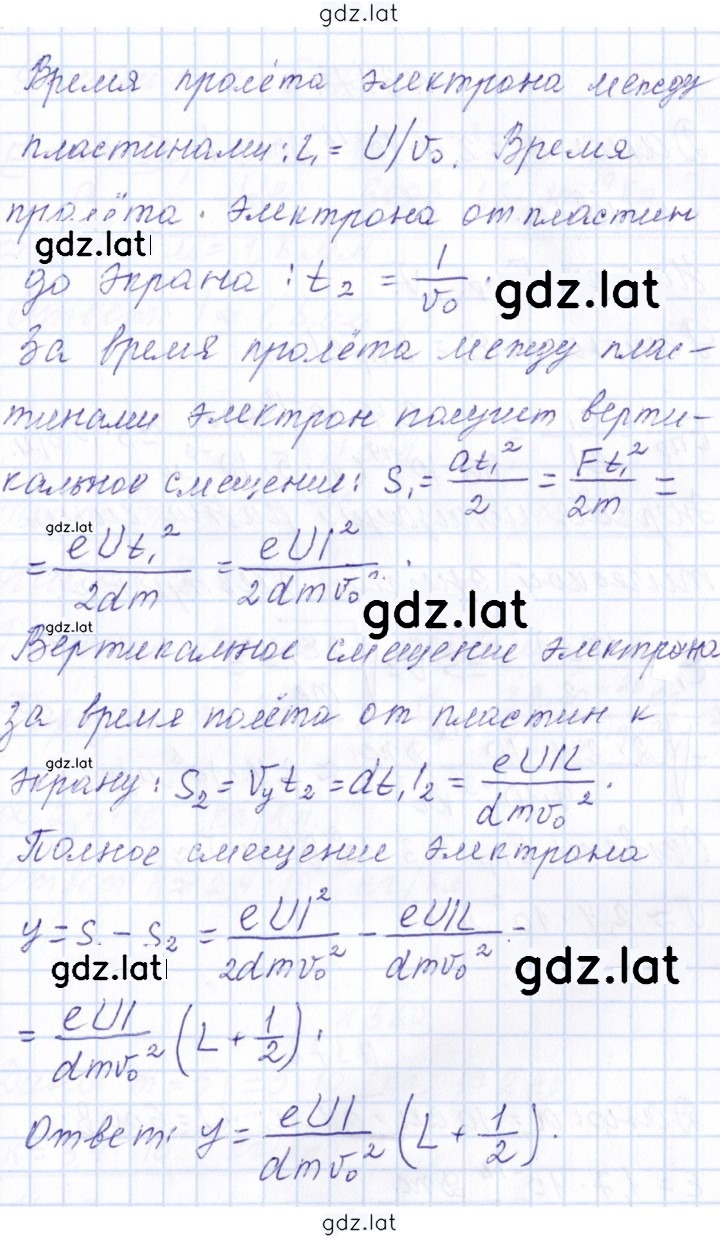 gdz.lat
Время пролёта электрона между
пластинами: t₁ = U/v₀. Время
пролёта электрона от пластин
gdz.lat
до экрана: t₂ = l/v₀. gdz.lat
За время пролёта между плас-
тинами электрон получит верти-
кальное смещение: S₁ = at₁²/2 = Ft₁²/2m =
gdz.lat
= eUt₁²/2dm = eUl²/2dmv₀².
gdz.lat gdz.lat
Вертикальное смещение электрона
за время полёта от пластин к
gdz.lat
экрану: S₂ = Vyt₂ = dt₁l₂ = eUlL/dmv₀².
Полное смещение электрона
y = S - S₂ = eUl²/2dmv₀² - eUlL/dmv₀² -
gdz.lat gdz.lat
= eUl/dmv₀² (L + l/2).
Ответ: y = eUl/dmv₀² (L + l/2).
gdz.lat